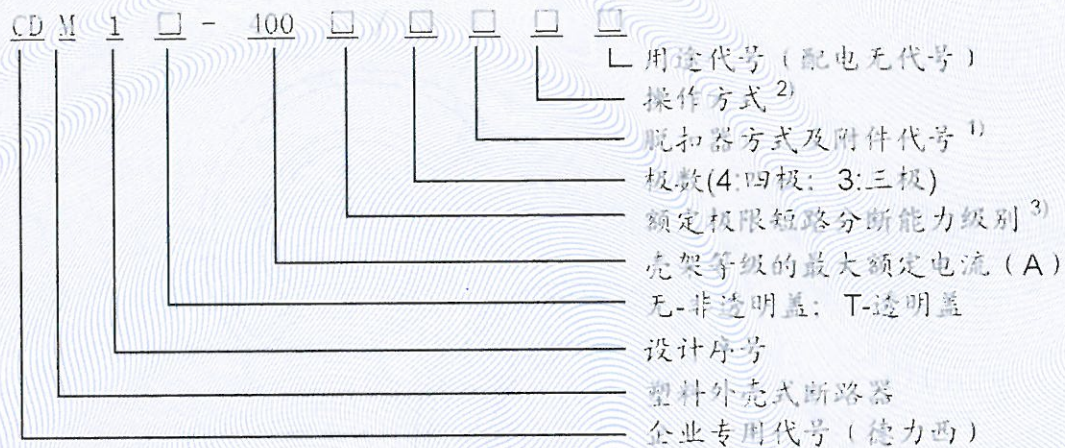 CD M 1 □ - 400 □ □ □ □ □
用途代号（配电无代号）
操作方式 2)
脱扣器方式及附件代号 1)
极数(4:四极; 3:三极)
额定极限短路分断能力级别 3)
壳架等级的最大额定电流（A）
无-非透明盖; T-透明盖
设计序号
塑料外壳式断路器
企业专用代号（德力西）